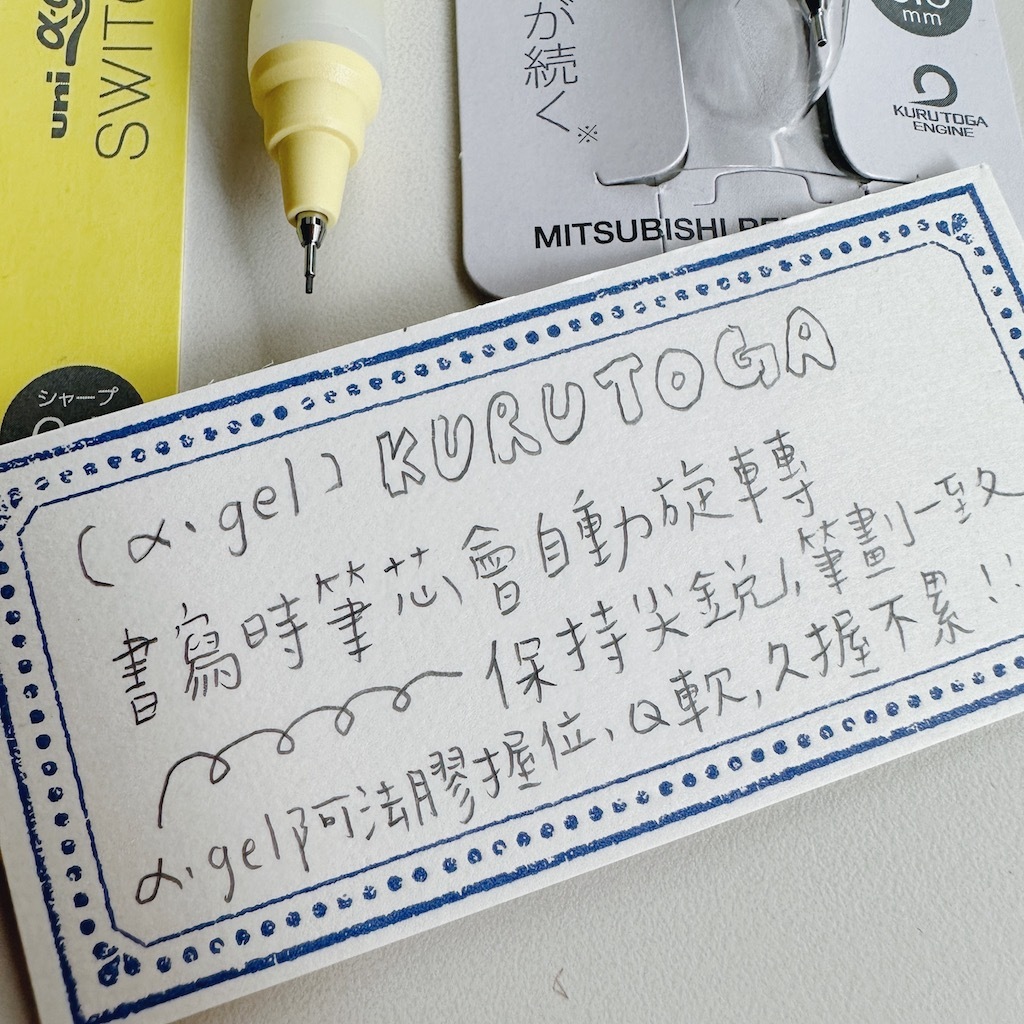 uni
SWITC
が続く※
mm
KURUTOGA
ENGINE
MITSUBISHI PE
シャープ
(α·gel) KURUTOGA
書寫時筆芯會自動旋轉
保持尖銳,筆劃一致
α·gel阿法膠握位,Q軟,久握不累!!